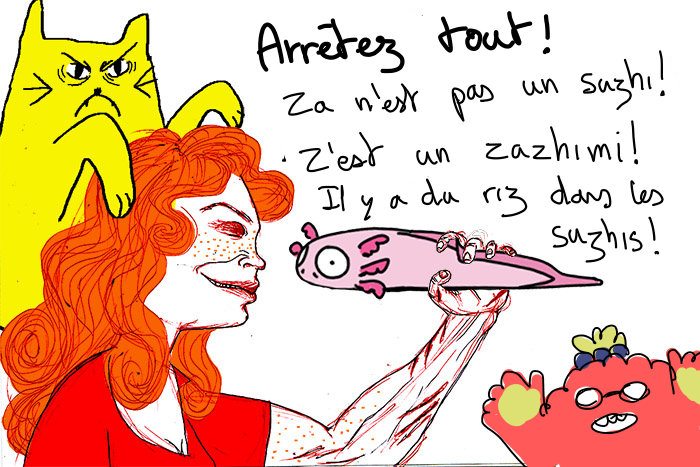 Arrêtez tout!
Za n'est pas un suzhi!
Z'est un zazhimi!
Il y a du riz dans les
suzhis!